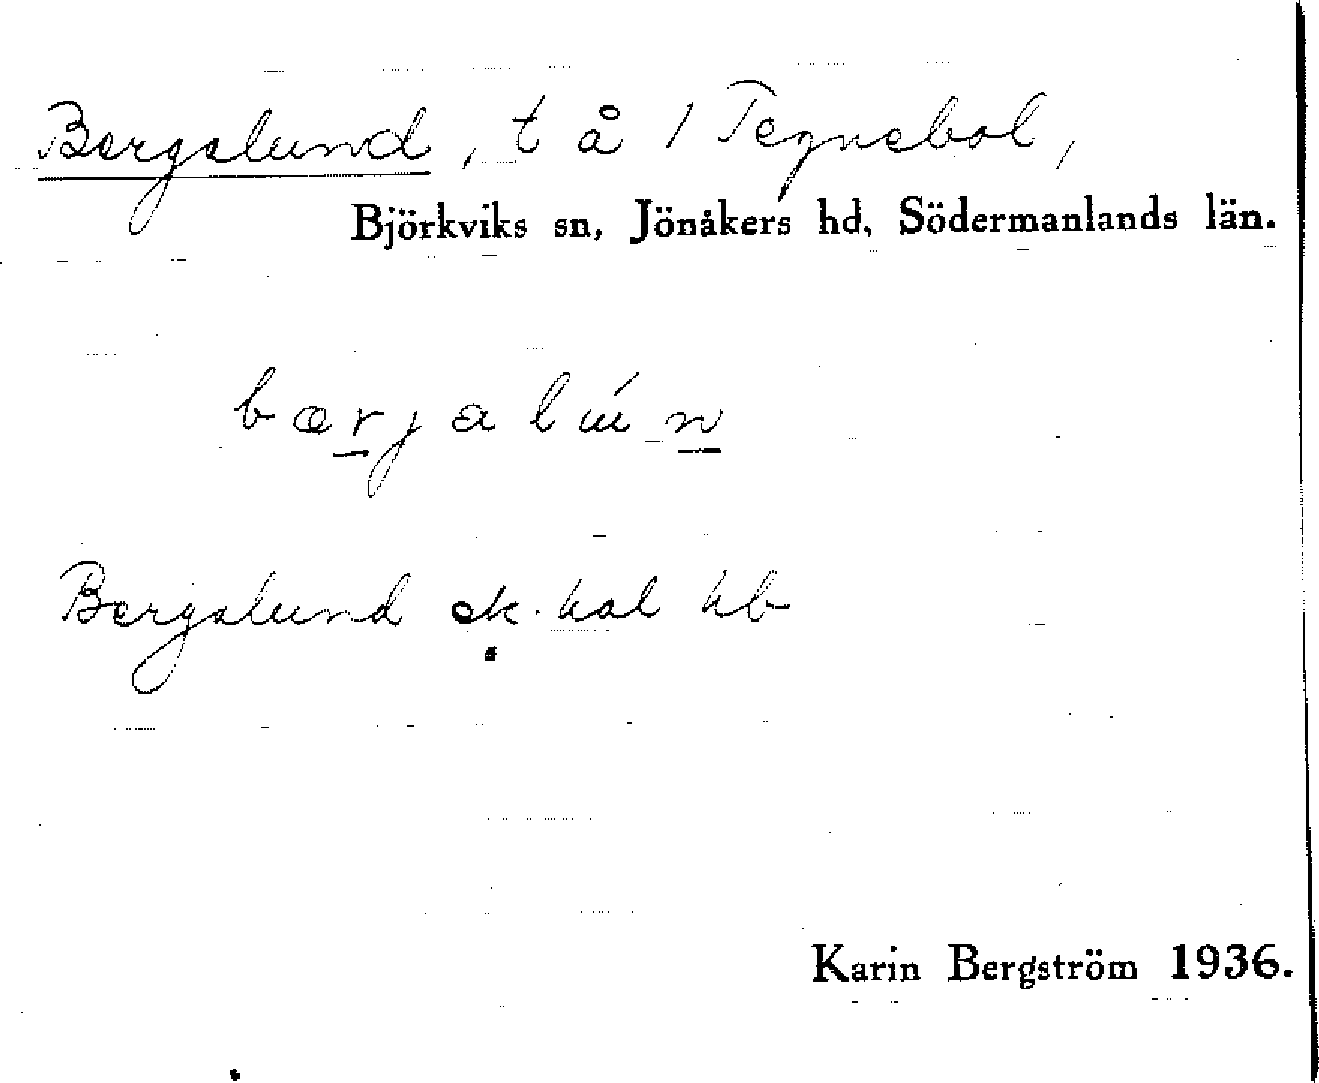 Bergslund, t å 1 Tegnebol,
Björkviks sn, Jönåkers hd, Södermanlands län.
bærjalún
Bergslund ek. kal hb
Karin Bergström 1936.